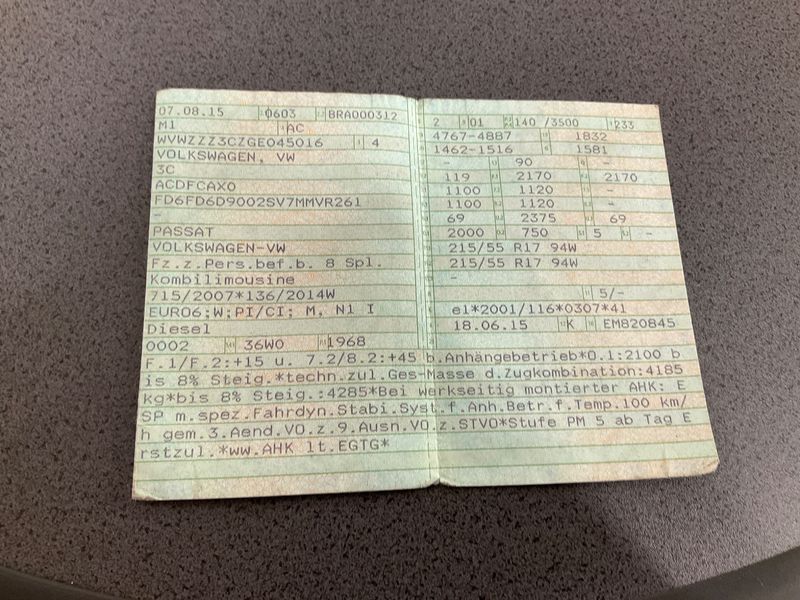 07.08.15 0603 BRA000312
M1 AC
WVWZZZ3CZGE045016 4
VOLKSWAGEN, VW
3C
ACDFCAX0
FD6FD6D9002SV7MMVR261
-
PASSAT
VOLKSWAGEN-VW
Fz.z.Pers.bef.b. 8 Spl.
Kombilimousine
715/2007*136/2014W
EURO6;W;PI/CI; M, N1 I
Diesel
0002 36W0 1968
2 01 140 /3500 233
4767-4887 1832
1462-1516 1581
- 90 -
119 2170 2170
1100 1120 -
1100 1120 -
69 2375 69
2000 750 5 -
215/55 R17 94W
215/55 R17 94W
-
5/-
e1*2001/116*0307*41
18.06.15 K EM820845
F.1/F.2:+15 u. 7.2/8.2:+45 b.Anhängebetrieb*O.1:2100 b
is 8% Steig.*techn.zul.Ges-Masse d.Zugkombination:4185
kg*bis 8% Steig.:4285*Bei werkseitig montierter AHK: E
SP m.spez.Fahrdyn.Stabi.Syst.f.Anh.Betr.f.Temp.100 km/
h gem.3.Aend.VO.z.9.Ausn.VO.z.STVO*Stufe PM 5 ab Tag E
rstzul.*ww.AHK lt.EGTG*